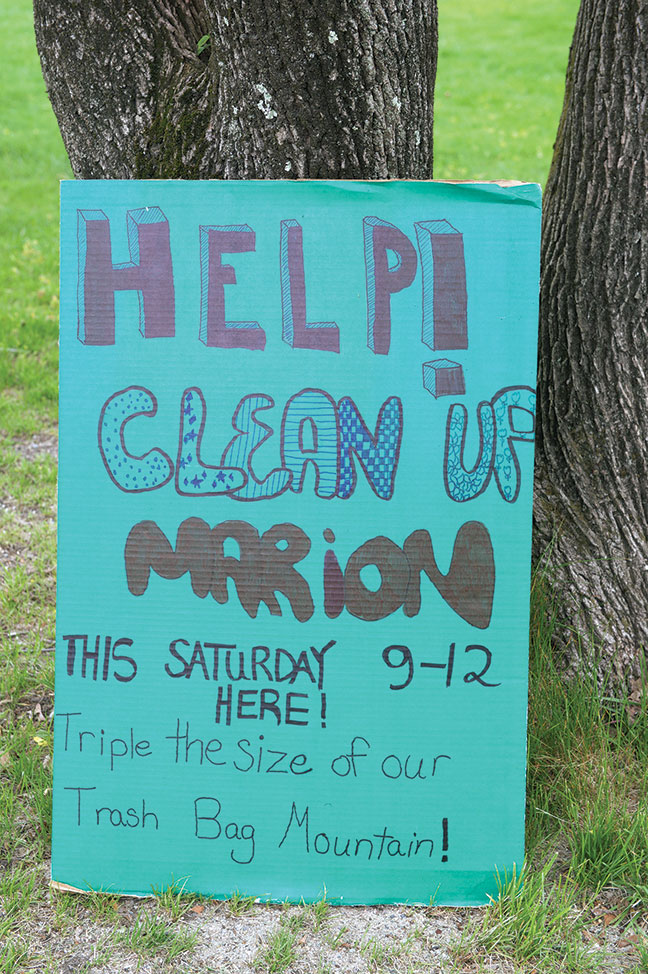 HELP!
CLEAN UP
MARiON
THIS SATURDAY 9-12
HERE!
Triple the size of our
Trash Bag Mountain!